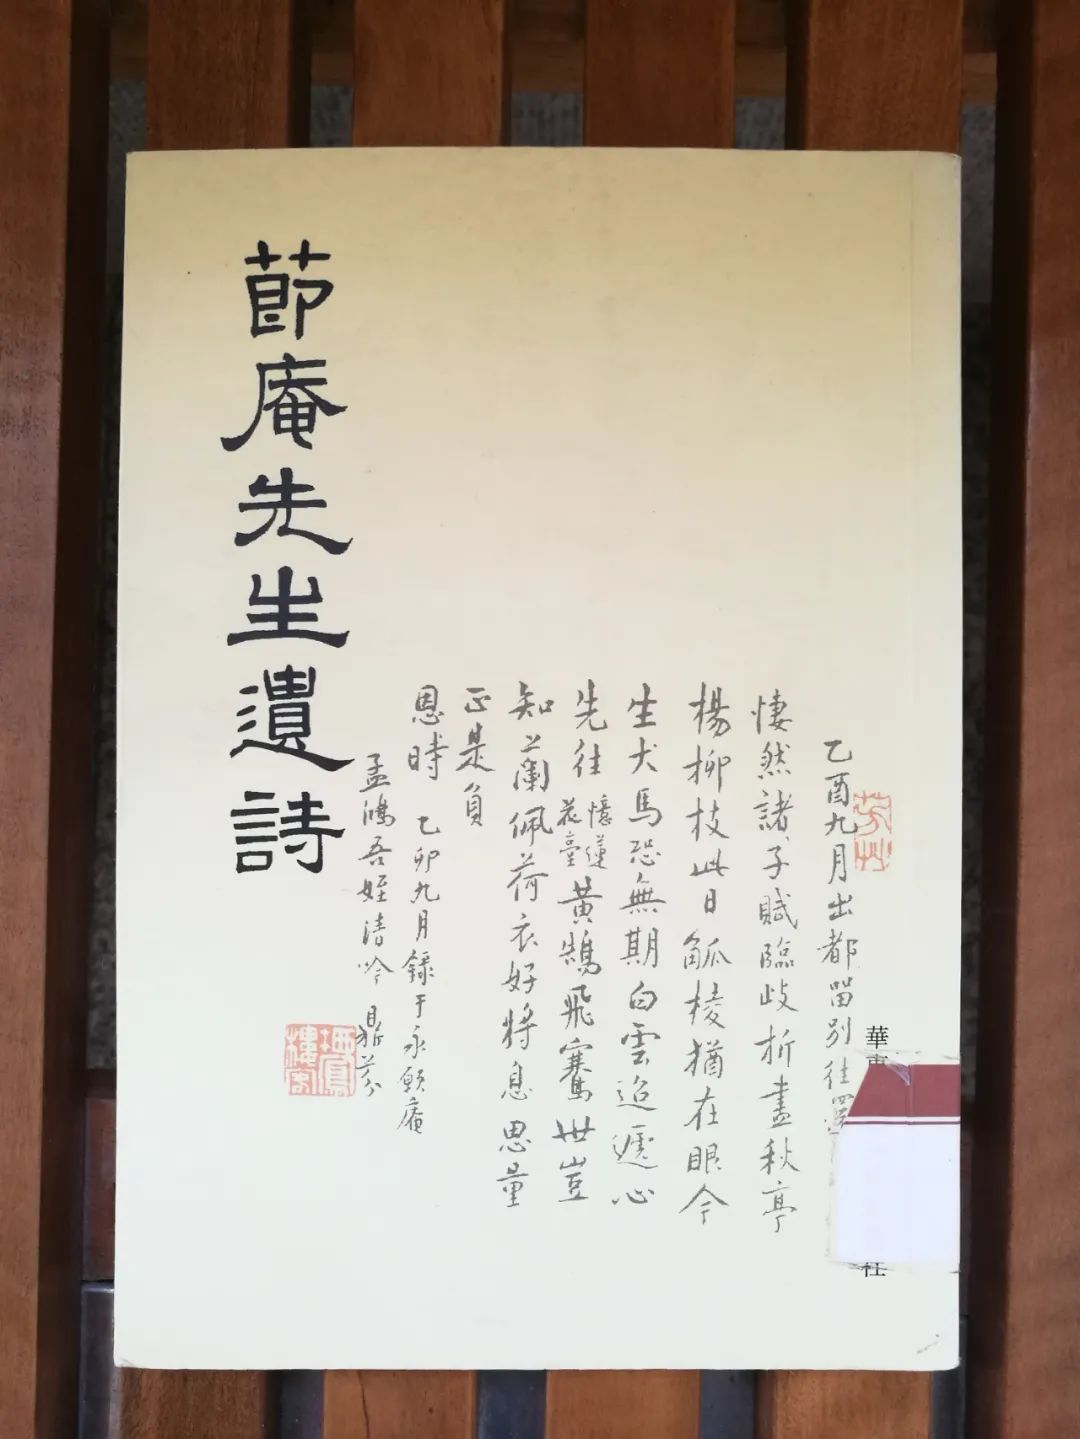 節庵先生遺詩
乙酉九月出都留別往還
悽然諸子賦臨歧折盡秋亭
楊柳枝此日觚棱猶在眼今
生犬馬恐無期白雲迢遞心
先往憶蓮花臺黃鵠飛騫世豈
知蘭佩荷衣好將息思量
正是負
恩時 乙卯九月錄于永願庵
孟鴻吾姪清吟 鼎芬
華東
社
芳草
樓客